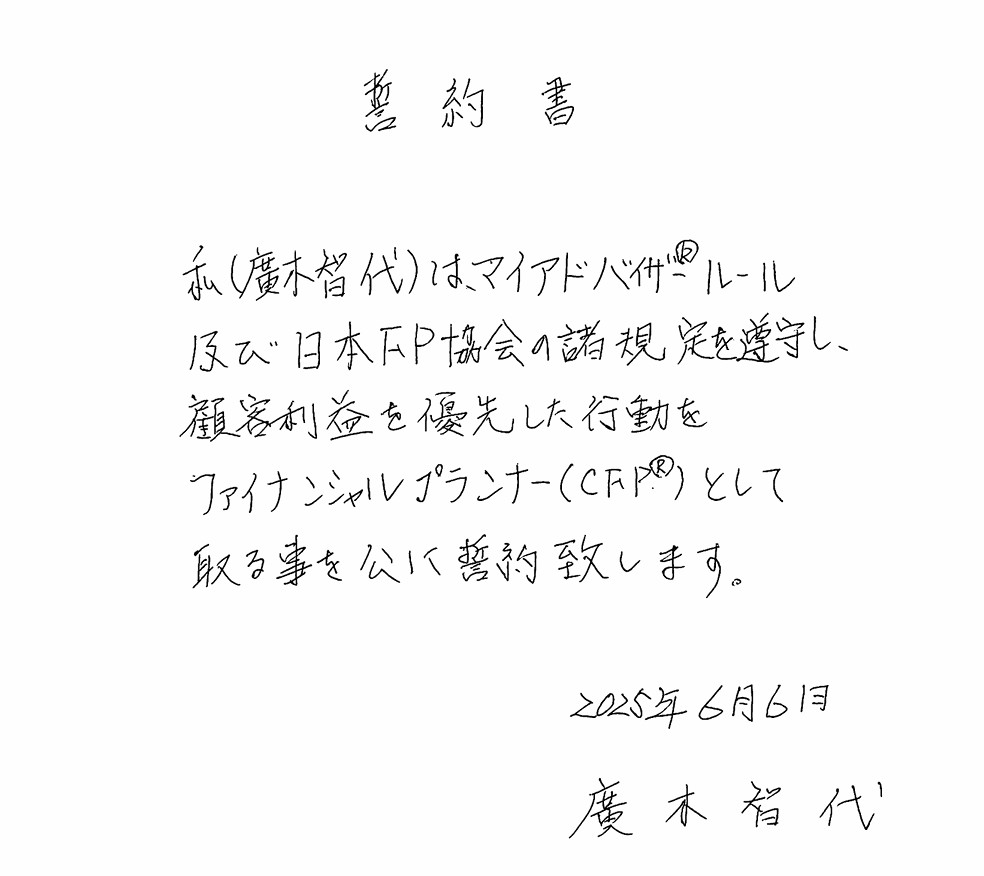 誓約書
私(廣木智代)は、マイアドバイザー®ルール
及び日本FP協会の諸規定を遵守し、
顧客利益を優先した行動を
ファイナンシャルプランナー(CFP®)として
取る事を公に誓約致します。
2025年6月6日
廣木智代